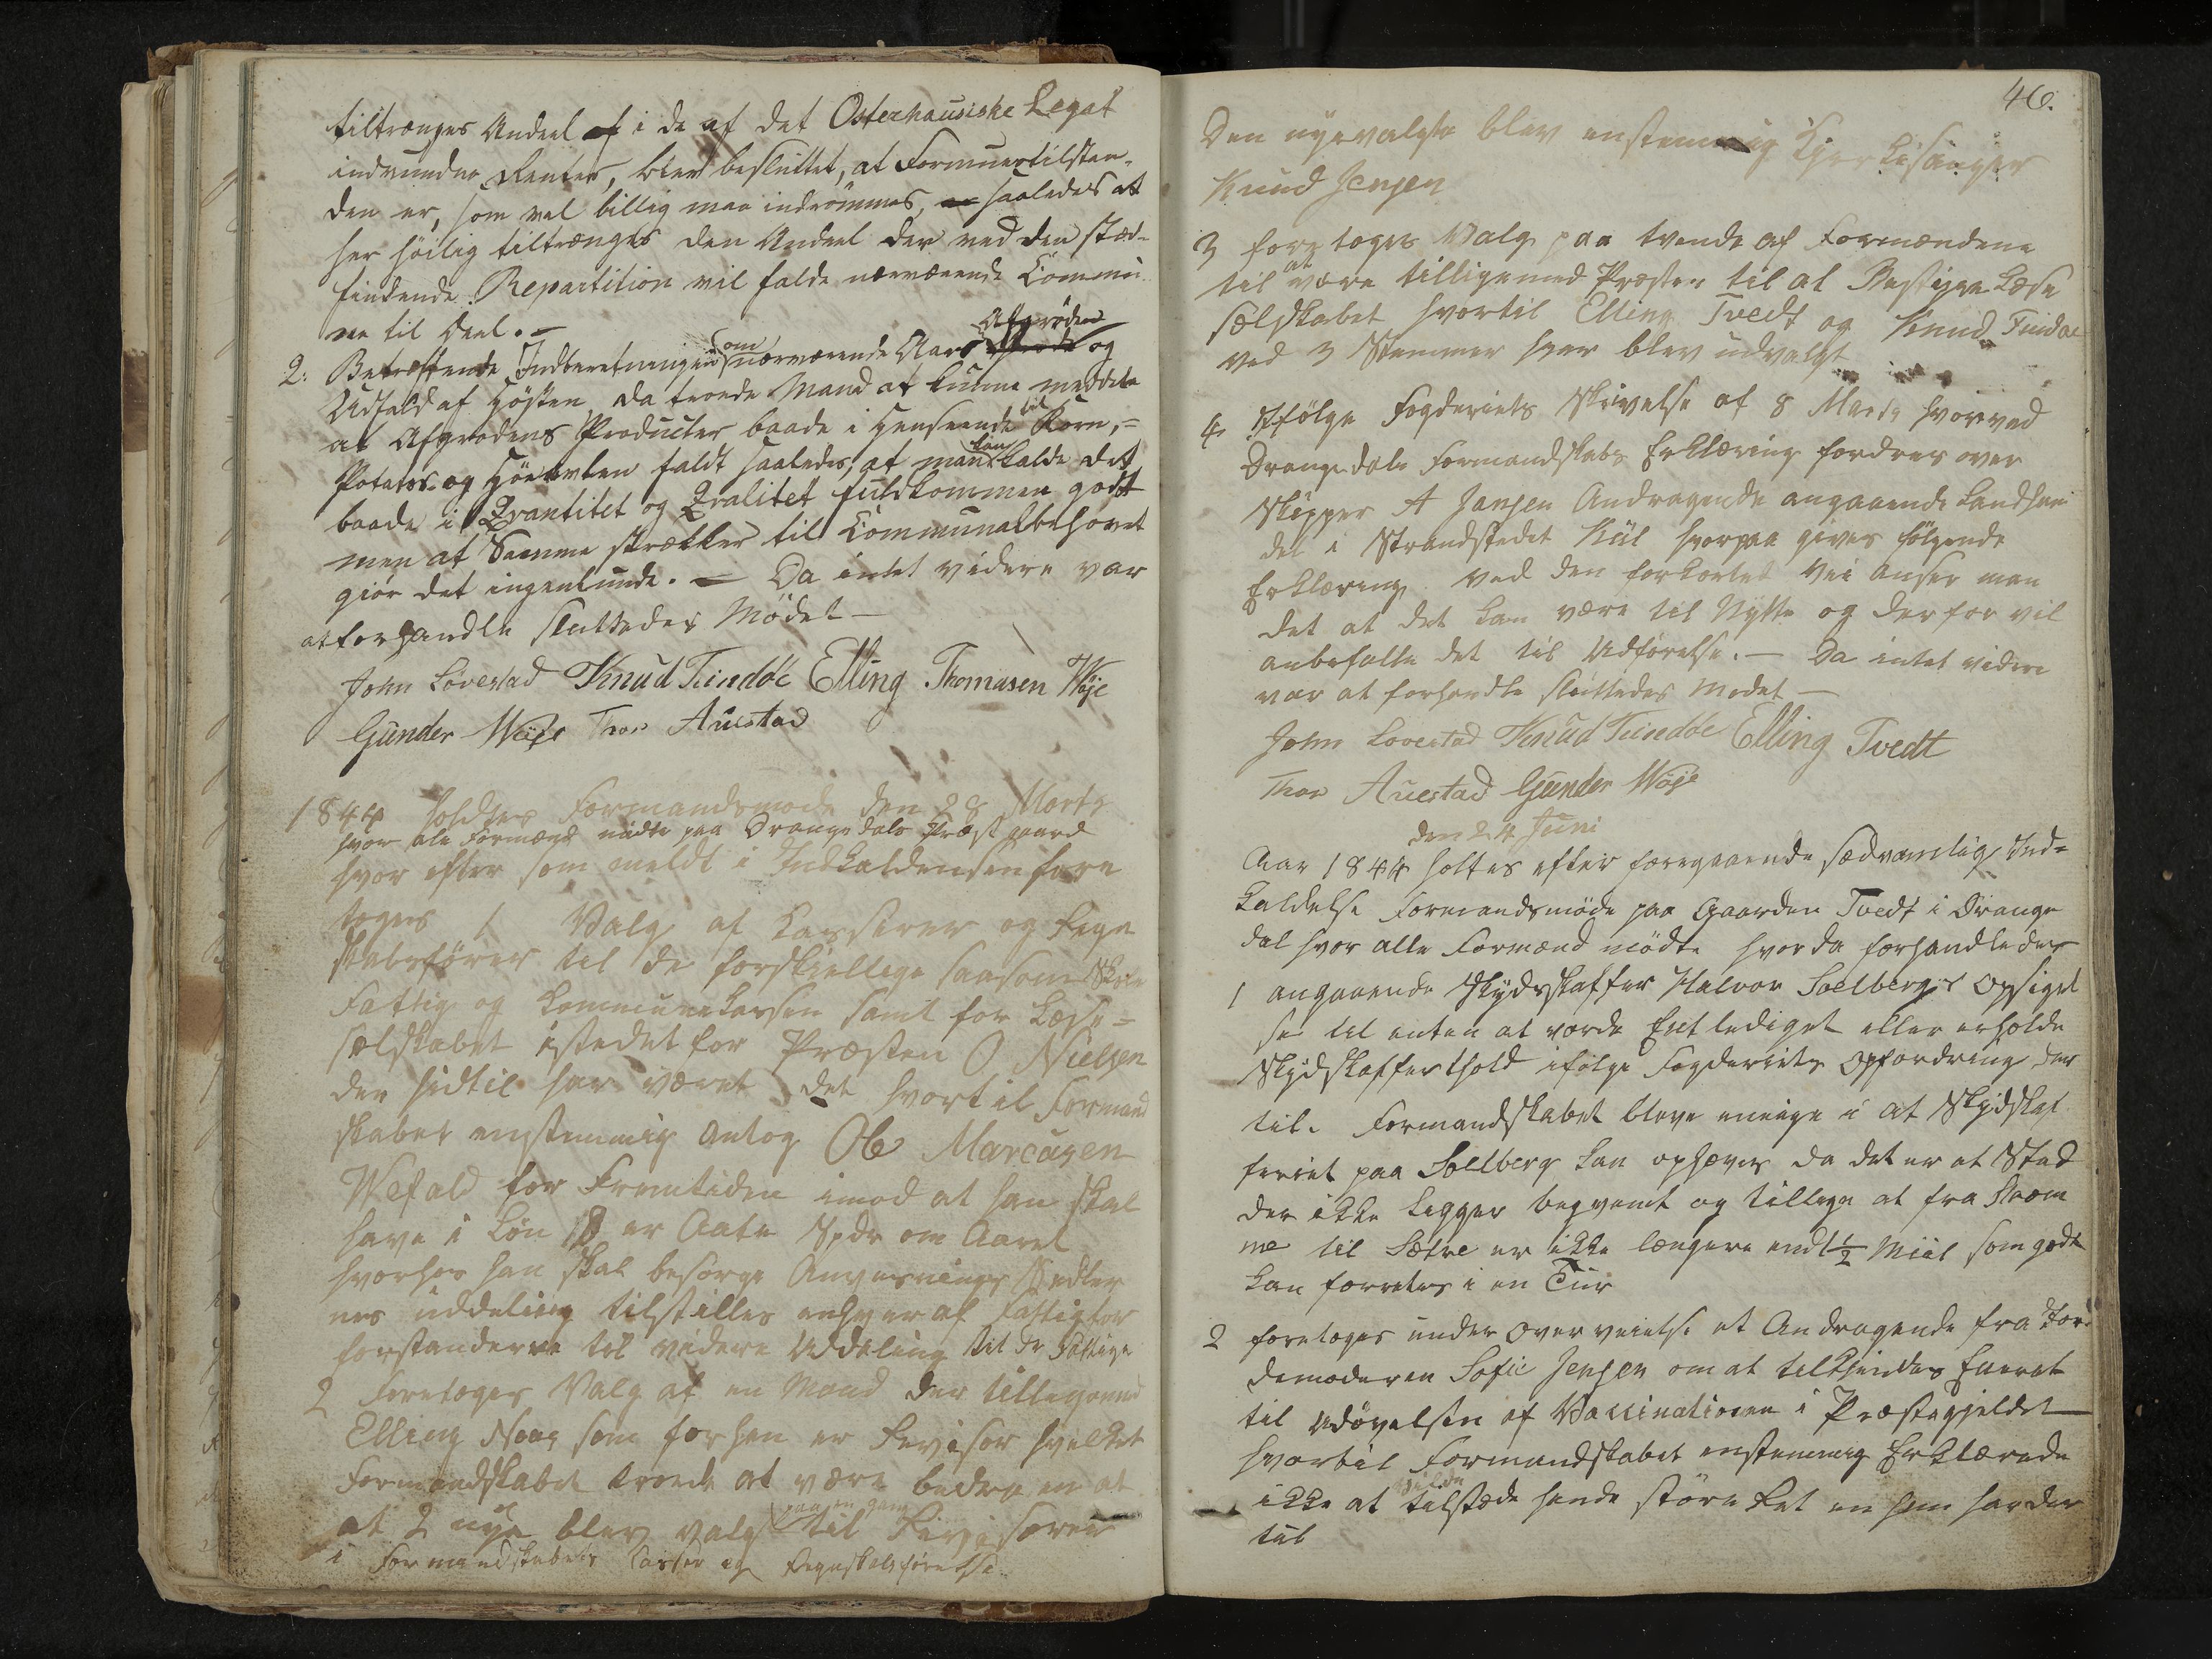 tiltrænges Andeel af i de af det Osterhausiske Legat
indvundne Renter, blev besluttet, at Formuestilstan-
den er, som vel billig maa indrömmes, saaledes at
her höilig tiltrænges den Andeel der ved den stæd-
findende Repartition vil falde nærværende Commu-
ne til Deel. -
2. Betræffende Indberetningen om nærværende Aars Afgröden og
Udfald af Hösten da troede Mand at kunne meddele
at Afgrödens Producter baade i Henseende til Korn,-
Potetes- og Höeavlen faldt saaledes, at man kan kalde det
baade i Qvantitet og Qvalitet fuldkommen godt
men at Samme strækker til Communalbehovet
giør det ingenlunde. - Da intet videre var
at forhandle sluttedes Mödet -
John Lovestad Knud Tundöe Elling Thomasen Wöje
Gunder Wöje Thor Auestad
1844 holdtes Formandsmøde den 28 Marts
hvor ale Formænd mødte paa Drangedals Præstgaard
hvor efter som meldt i Indkaldensen fore
toges 1 Valg af Casserer og Regn
skabsfører til de forskiellige saasom Skole
Fattig og Communekassen samt for Læse-
sælskabet istedet for Præsten O Nielsen
der hidtil har været det hvortil Formand
skabet enstemmig antog Ole Marcusen
Wefald for Fremtiden imod at han skal
have i Løn 18 er Aate Spdr om Aaret
hvorhos han skal besørge Anvisnings Sedler
nes uddeling tilstilles enhver af Fattigfor
forstanderne til videre Uddeling til de Fattige
2 Foretoges Valg af en Mand der tilligemed
Elling Noae som forhen er Revisor hvilket
Formandskabet troede at være bedre en at
at 2 nye blev valgt paa en gang til Revisorer
i Formandskabets Casser og Regnskabsførelse.
46.
Den nyevalgte blev enstemmig Kjerkisanger
Knud Jensen
3 foretoges Valg paa tvende af Formændene
til at være tilligemed Præsten til at Bestyre Læse
sælskabet hvortil Elling Tvedt og Knud Tundöe
ved 3 Stemmer hver blev udvalgt
4 Ifölge Fogderiets Skrivelse af 8 Marts hvorved
Drangedals Formandskabs Erklæring fordres over
Skipper A Jansen Andragende angaaende Landhan
del i Strandstedet Kiil hvorpaa gives følgende
Erklæring ved den forkortet Vei anser man
det at det kan være til Nytte og derfor vil
anbefalle det til Udførelse. - Da intet videre
var at forhandle sluttedes Mødet -
John Lovestad Knud Tundöe Elling Tvedt
Thor Auestad Gunder Wöje
den 24 Juni
Aar 1844 holtes efter foregaaende sædvanlig Ind-
kaldelse Formandsmöde paa Gaarden Tvedt i Drange
dal hvor alle Formænd mödte hvor da forhandledes
1 angaaende Skydsskaffer Halvor Soelbergs Opsigel
se til enten at vorde Entlediget eller erholde
Skydskafferthold ifølge Fogderiets Opfordring der
til. Formandskabet bleve eenige i at Skydskaf
feriet paa Solberg kan ophæves da det er at Sted
der ikke ligger beqvemt og tillige at fra Straum
me til Sætre er ikke længere end 1½ Miil som godt
kan forrettes i en Tuur
2 foretoges under Overveielse et Andragende fra Jor-
demoderen Sofie Jensen om at tilkjendes Eneret
til Udøvelsen af Vaccinationen i Præstegjeldet
hvortil Formandskabet enstemmig Erklærede
ikke at vilde tilstæde hende større Ret en hun har der
til